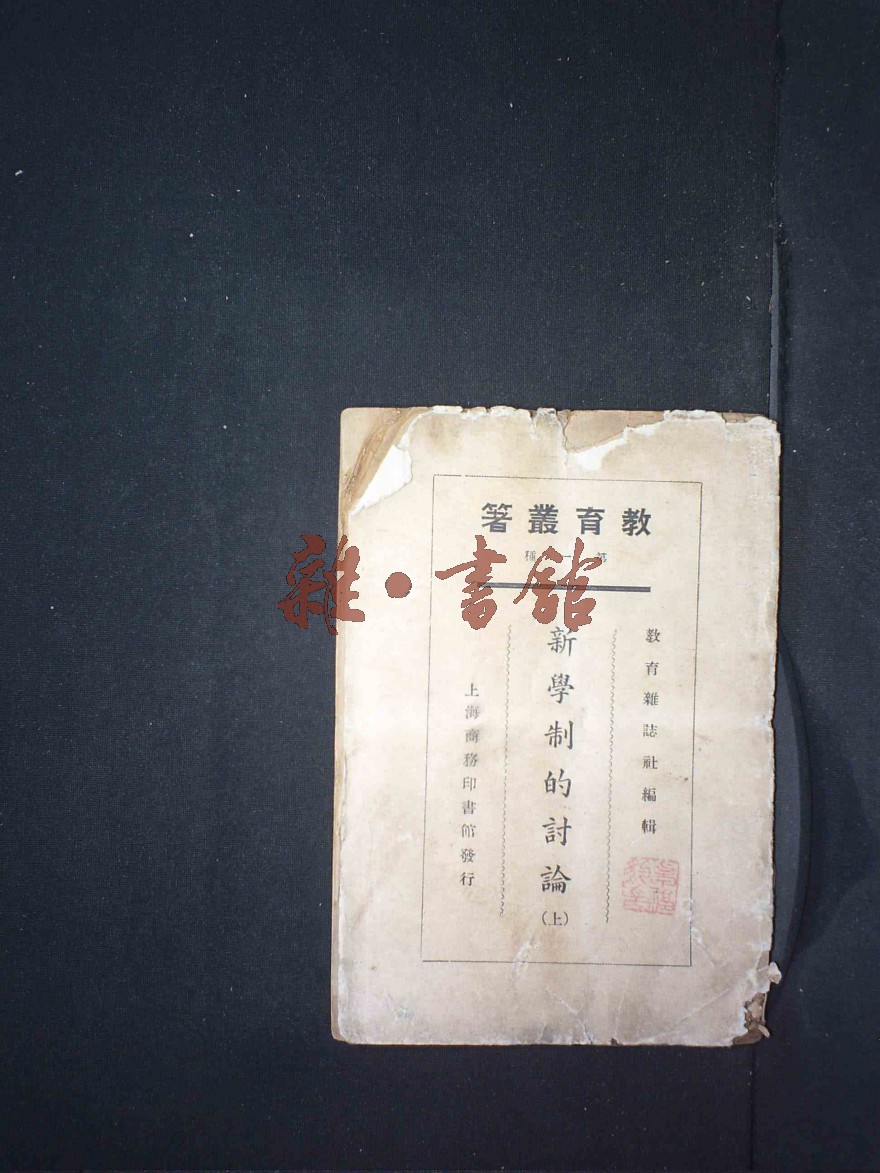 教育叢著
第一種
教育雜誌社編輯
新學制的討論(上)
上海商務印書館發行
雜·書館